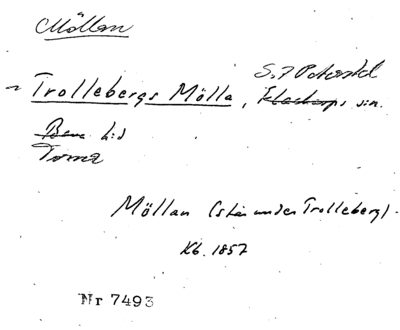 Möllan
~ Trollebergs Mölla, S:t Peters kl
Klosterps sn.
Bara h:d
Torna
Möllan (står under Trolleberg).
Kb. 1857
Nr 7493